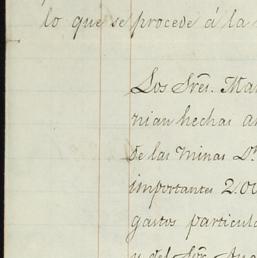 lo que se procede á la
Los Sres. Ma
nian hechas a
de las minas Dn
importantes 2.00
gastos particula
y del Sor.